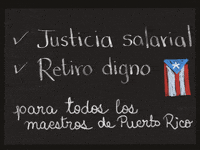 ✓ Justicia salarial
✓ Retiro digno
para todos los
maestros de Puerto Rico